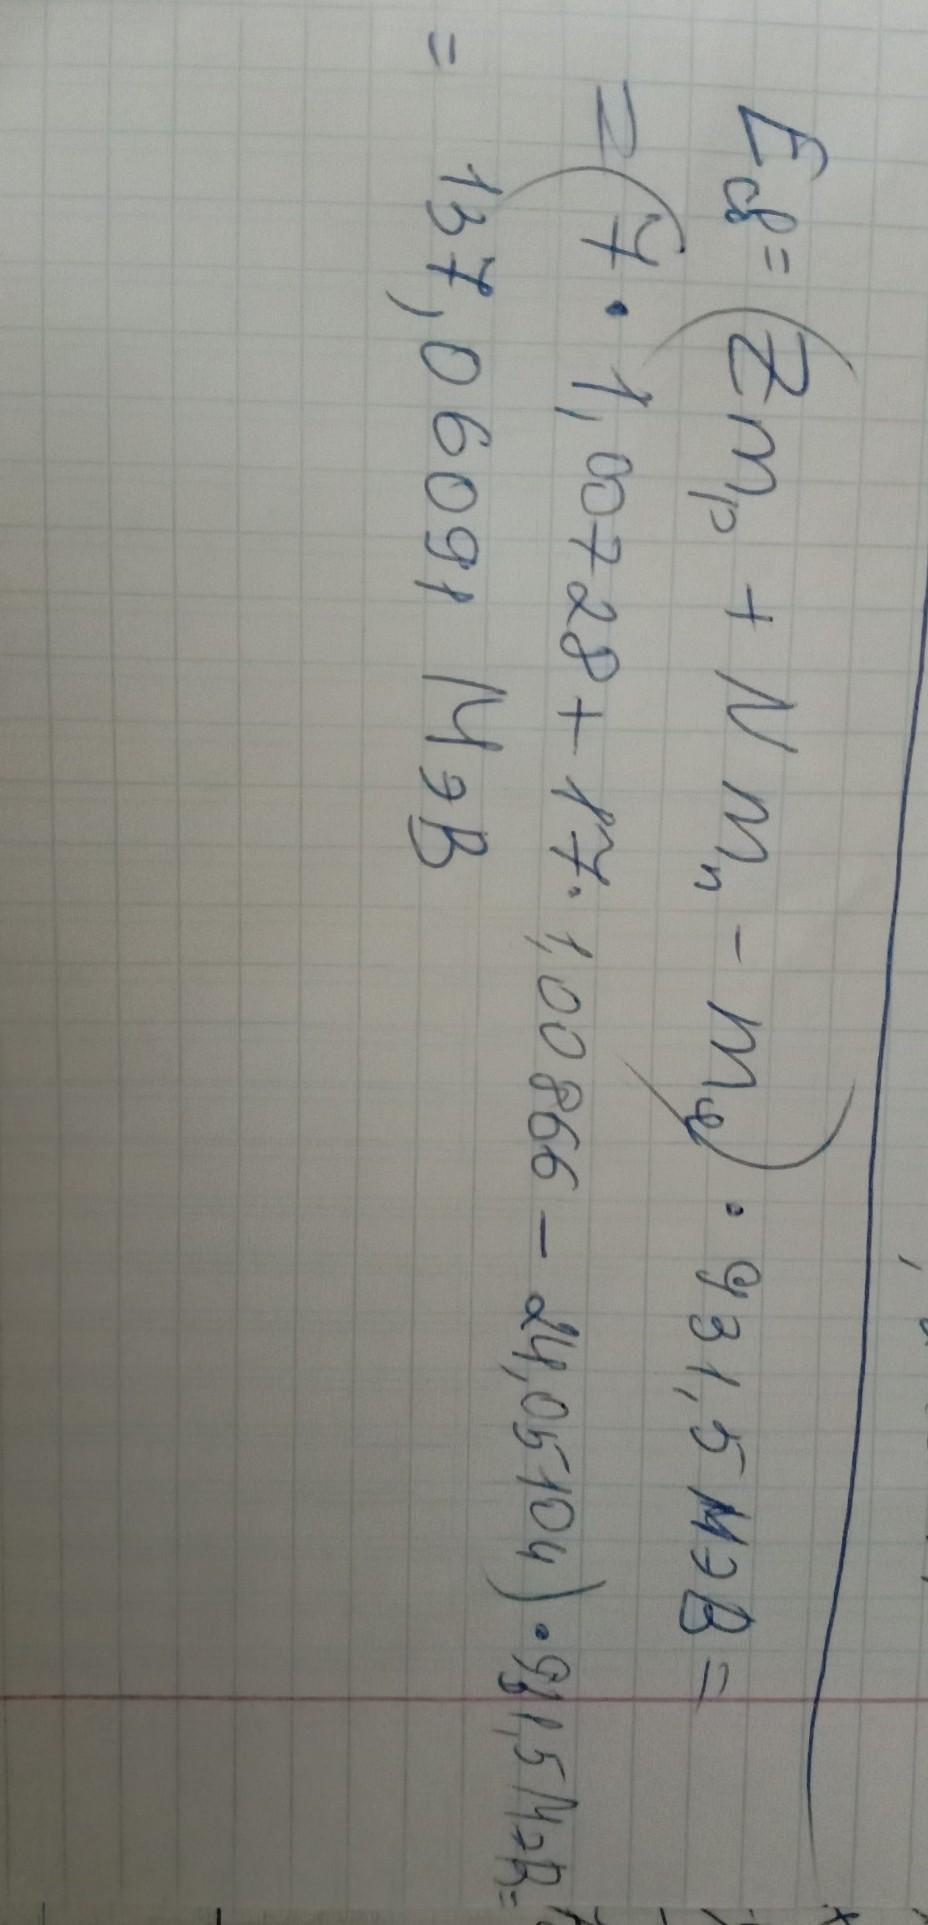 Eсв = (Zmp + Nmn - mя) · 931,5 МэВ =
= (7 · 1,00728 + 17 · 1,00866 - 24,05104) · 931,5 МэВ =
= 137,06091 МэВ